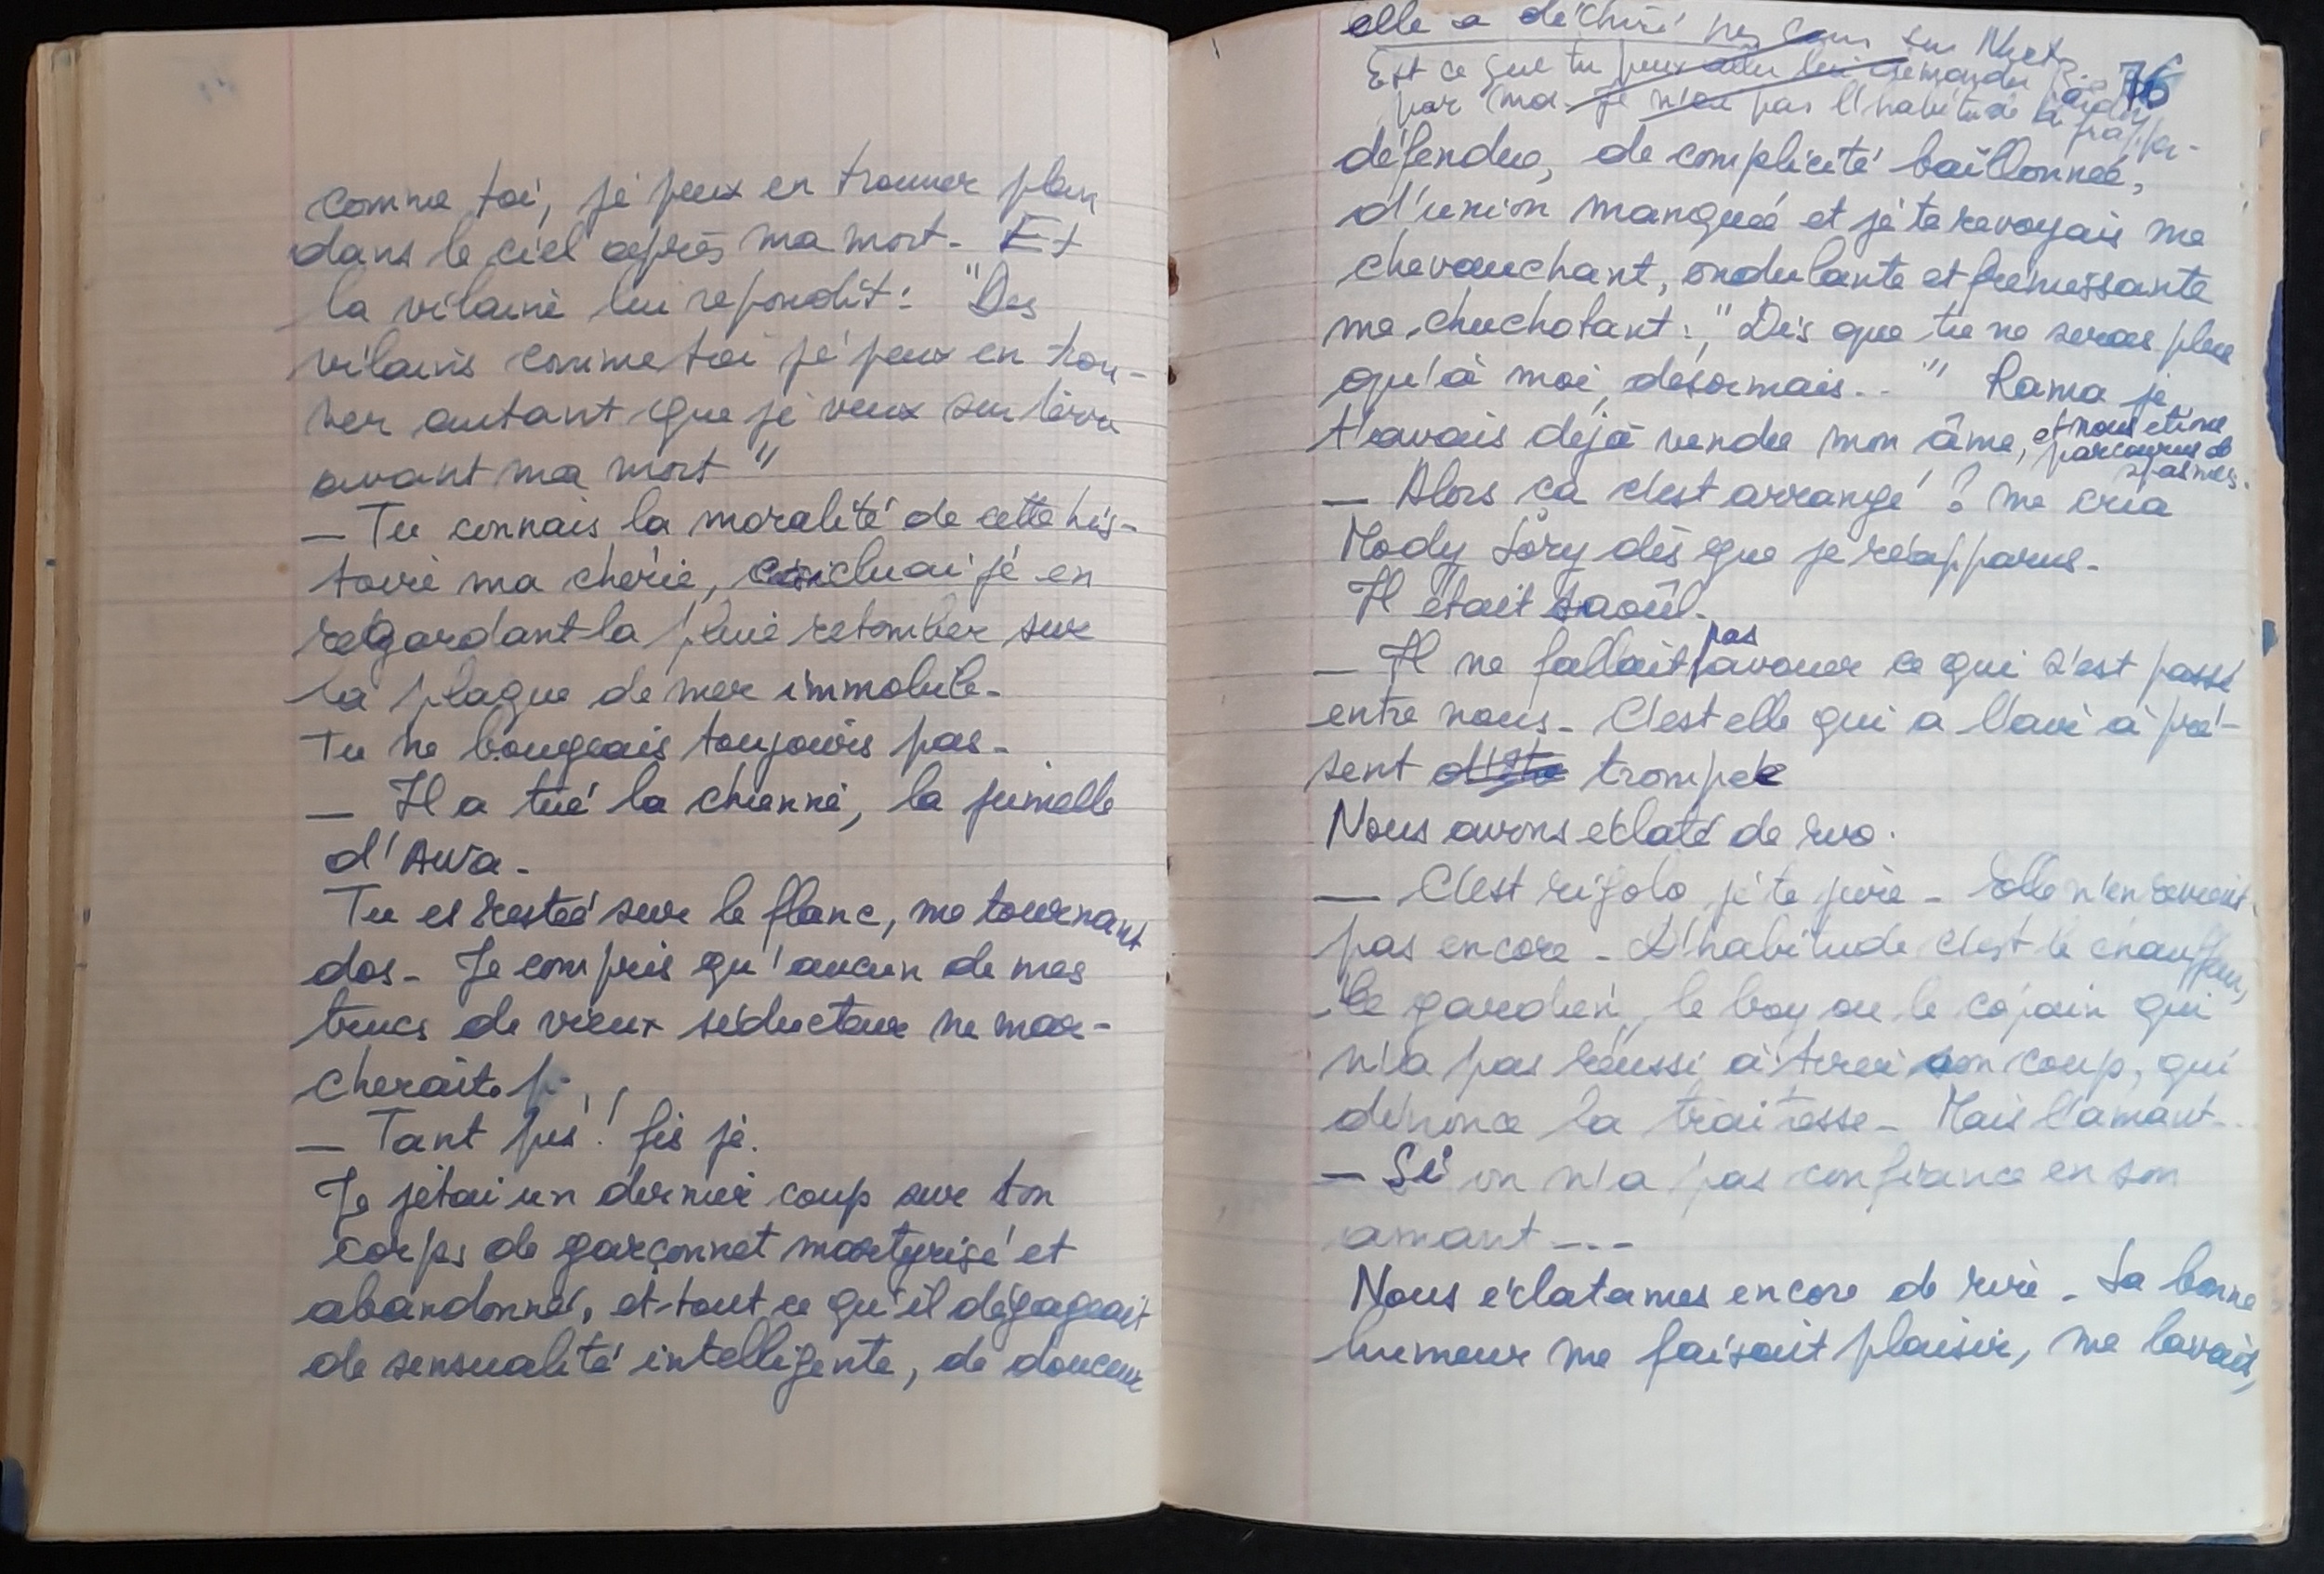 comme toi, je peux en trouver plein
dans le ciel après ma mort - Et
la vilaine lui répondit : "Des
vilains comme toi je peux en trou-
ver autant que je veux sur terre
avant ma mort"
— Tu connais la moralité de cette his-
toire ma chérie, concluai je en
regardant la pluie retomber sur
la plaque de mer immobile -
Tu ne bougeais toujours pas -
— Il a tué la chienne, la jumelle
d'Awa -
Tu es restée sur le flanc, me tournant
dos - Je compris qu'aucun de mes
trucs de vieux séducteur ne mar-
cherait.
— Tant pis ! fis je.
Je jetai un dernier coup sur ton
corps de garçonnet martyrisé et
abandonné, et tout ce qu'il dégageait
de sensualité intelligente, de douceur
elle a déchiré sur
Est ce que tu peux lui demander
par moi - Je n'ai pas l'habitude de frapper -
76
défendue, de complicité baîllonnée,
d'union manquée et je te revoyais me
chevauchant, ondulante et frémissante
me chuchotant : "Dis que tu ne seras plus
qu'à moi, désormais.. " Rama je
t'avais déjà vendu mon âme, et nous étions
parcourus de
spasmes.
— Alors ça c'est arrangé ? me cria
Mody Sory dès que je réapparus -
Il était saoûl -
— Il ne fallait pas avouer ce qui s'est passé
entre nous - C'est elle qui a l'air à pré-
sent trompée
Nous avons éclaté de rire.
— C'est rigolo je te jure - Elle n'en revient
pas encore - D'habitude c'est le chauffeur,
le gardien, le boy ou le copain qui
n'a pas réussi à tirer son coup, qui
dénonce la traitesse - Mais l'amant..
— Si on n'a pas confiance en son
amant ---
Nous éclatames encore de rire - Sa bonne
humeur me faisait plaisir, me lavait,